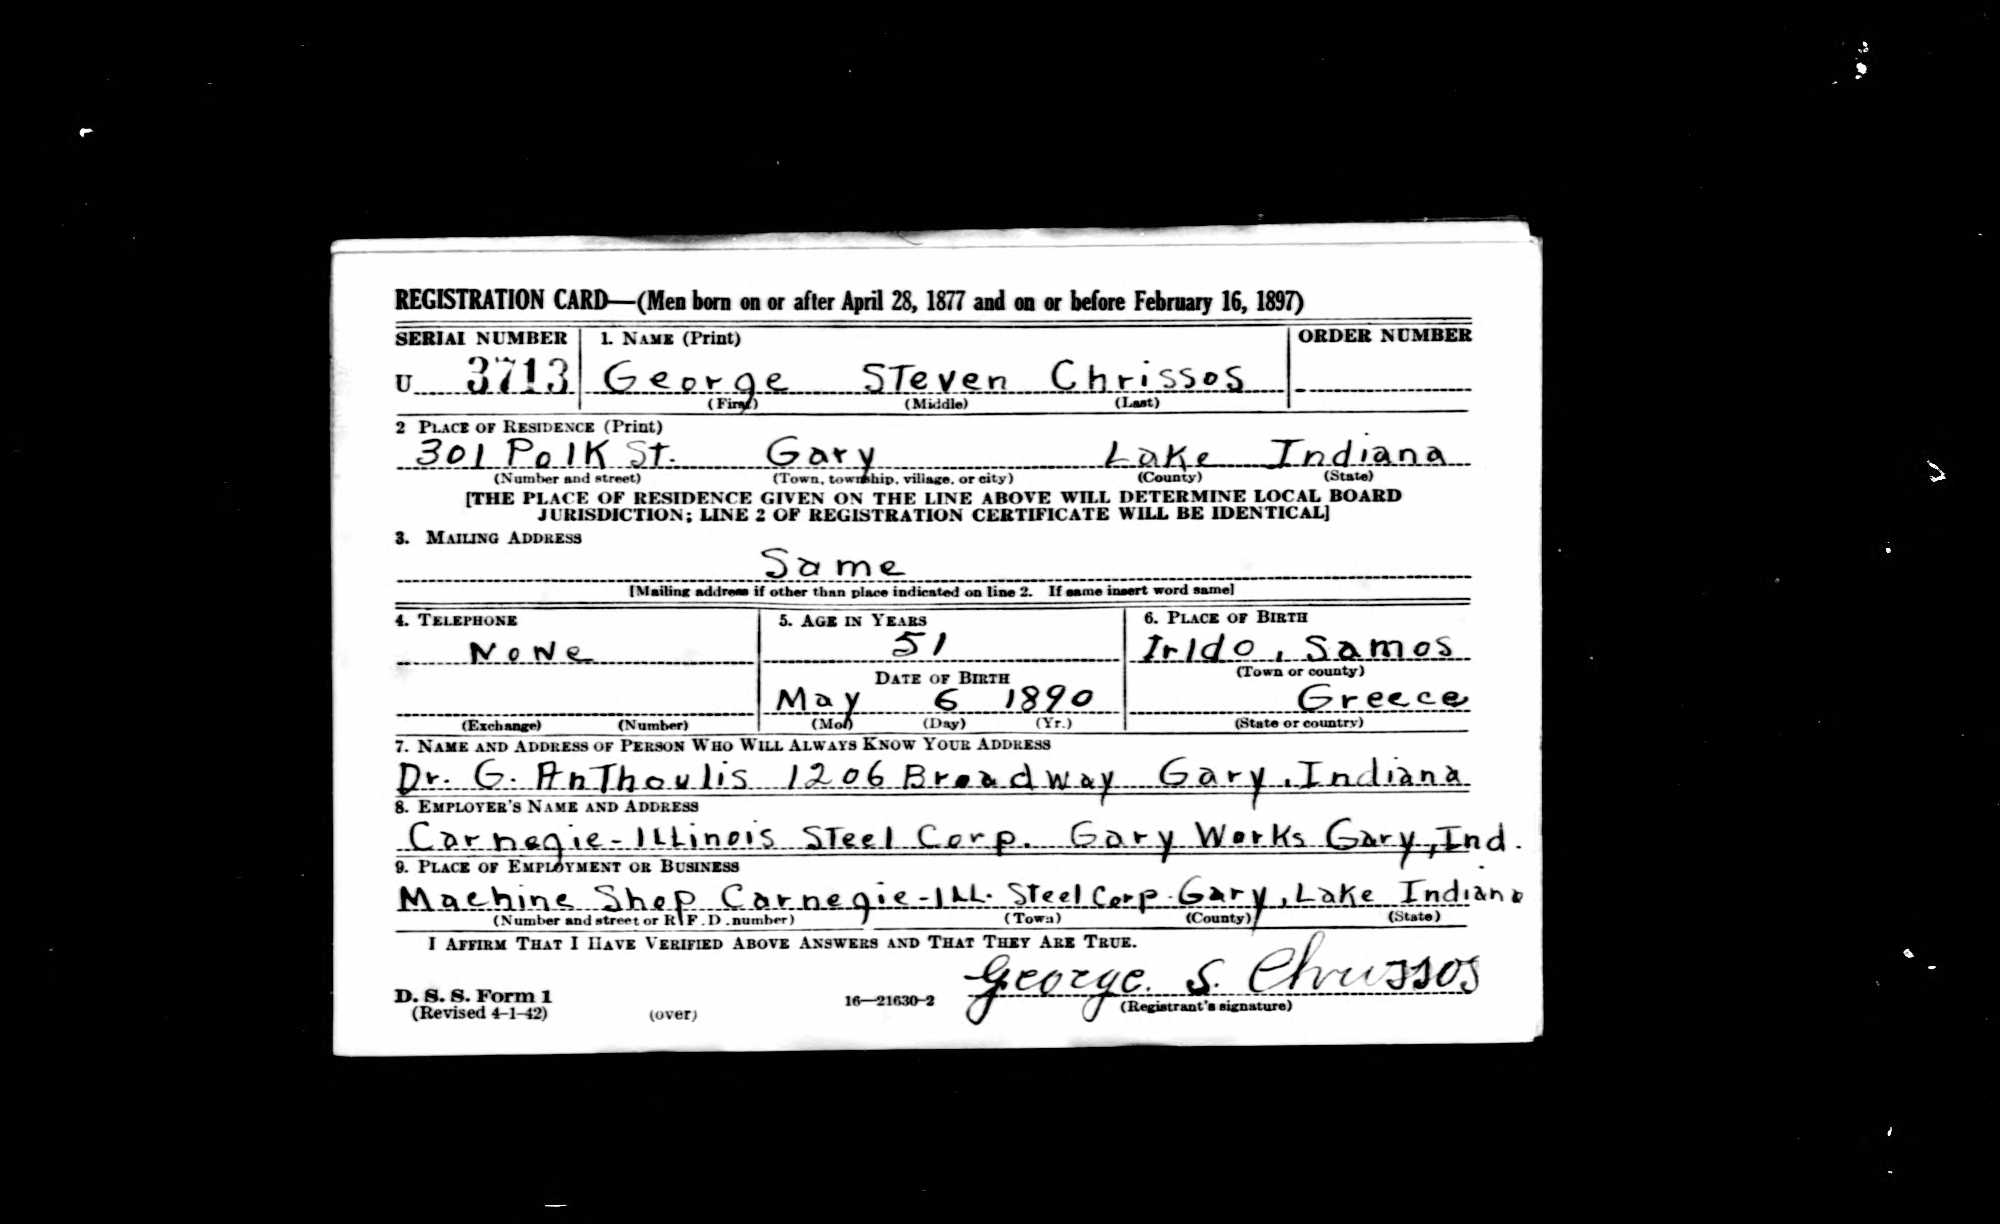 REGISTRATION CARD—(Men born on or after April 28, 1877 and on or before February 16, 1897)
SERIAL NUMBER 1. NAME (Print) ORDER NUMBER
U 3713 George Steven Chrissos
(First) (Middle) (Last)
2 PLACE OF RESIDENCE (Print)
301 Polk St. Gary Lake Indiana
(Number and street) (Town, township, village, or city) (County) (State)
[THE PLACE OF RESIDENCE GIVEN ON THE LINE ABOVE WILL DETERMINE LOCAL BOARD
JURISDICTION; LINE 2 OF REGISTRATION CERTIFICATE WILL BE IDENTICAL]
3. MAILING ADDRESS
Same
[Mailing address if other than place indicated on line 2. If same insert word same]
4. TELEPHONE 5. AGE IN YEARS 6. PLACE OF BIRTH
None 51 Irldo, Samos
(Town or county)
DATE OF BIRTH
May 6 1890 Greece
(Exchange) (Number) (Mo.) (Day) (Yr.) (State or country)
7. NAME AND ADDRESS OF PERSON WHO WILL ALWAYS KNOW YOUR ADDRESS
Dr. G. AnThoulis 1206 Broadway Gary, Indiana
8. EMPLOYER'S NAME AND ADDRESS
Carnegie-Illinois Steel Corp. Gary Works Gary, Ind.
9. PLACE OF EMPLOYMENT OR BUSINESS
Machine Shop Carnegie-Ill. Steel Corp. Gary, Lake Indiana
(Number and street or R. F. D. number) (Town) (County) (State)
I AFFIRM THAT I HAVE VERIFIED ABOVE ANSWERS AND THAT THEY ARE TRUE.
George. S. Chrissos
D. S. S. Form 1 16—21630-2 (Registrant's signature)
(Revised 4-1-42) (over)